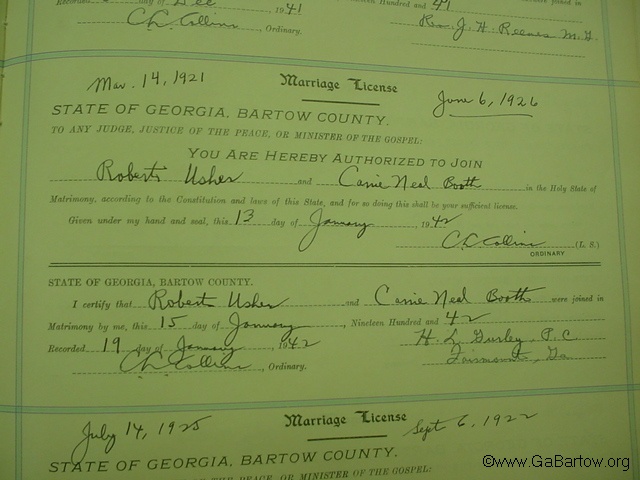 Recorded day of Dec 1941 Nineteen Hundred and 41
C.C. Collins, Ordinary. Rev. J. H. Reeves M. G.
Mar. 14, 1921 Marriage License June 6, 1926
STATE OF GEORGIA, BARTOW COUNTY.
TO ANY JUDGE, JUSTICE OF THE PEACE, OR MINISTER OF THE GOSPEL:
YOU ARE HEREBY AUTHORIZED TO JOIN
Robert Usher and Carrie Neal Booth in the Holy State of
Matrimony, according to the Constitution and laws of this State, and for so doing this shall be your sufficient license.
Given under my hand and seal, this 13 day of January, 1942
C.C. Collins (L. S.)
ORDINARY
STATE OF GEORGIA, BARTOW COUNTY.
I certify that Robert Usher and Carrie Neal Booth were joined in
Matrimony by me, this 15 day of January, Nineteen Hundred and 42
Recorded 19 day of January 1942 H. L. Gurley, P. C
C.C. Collins, Ordinary. Fairmount, Ga
July 14, 1925 Marriage License Sept 6, 1922
STATE OF GEORGIA, BARTOW COUNTY.
OF THE PEACE, OR MINISTER OF THE GOSPEL:
©www.GaBartow.org